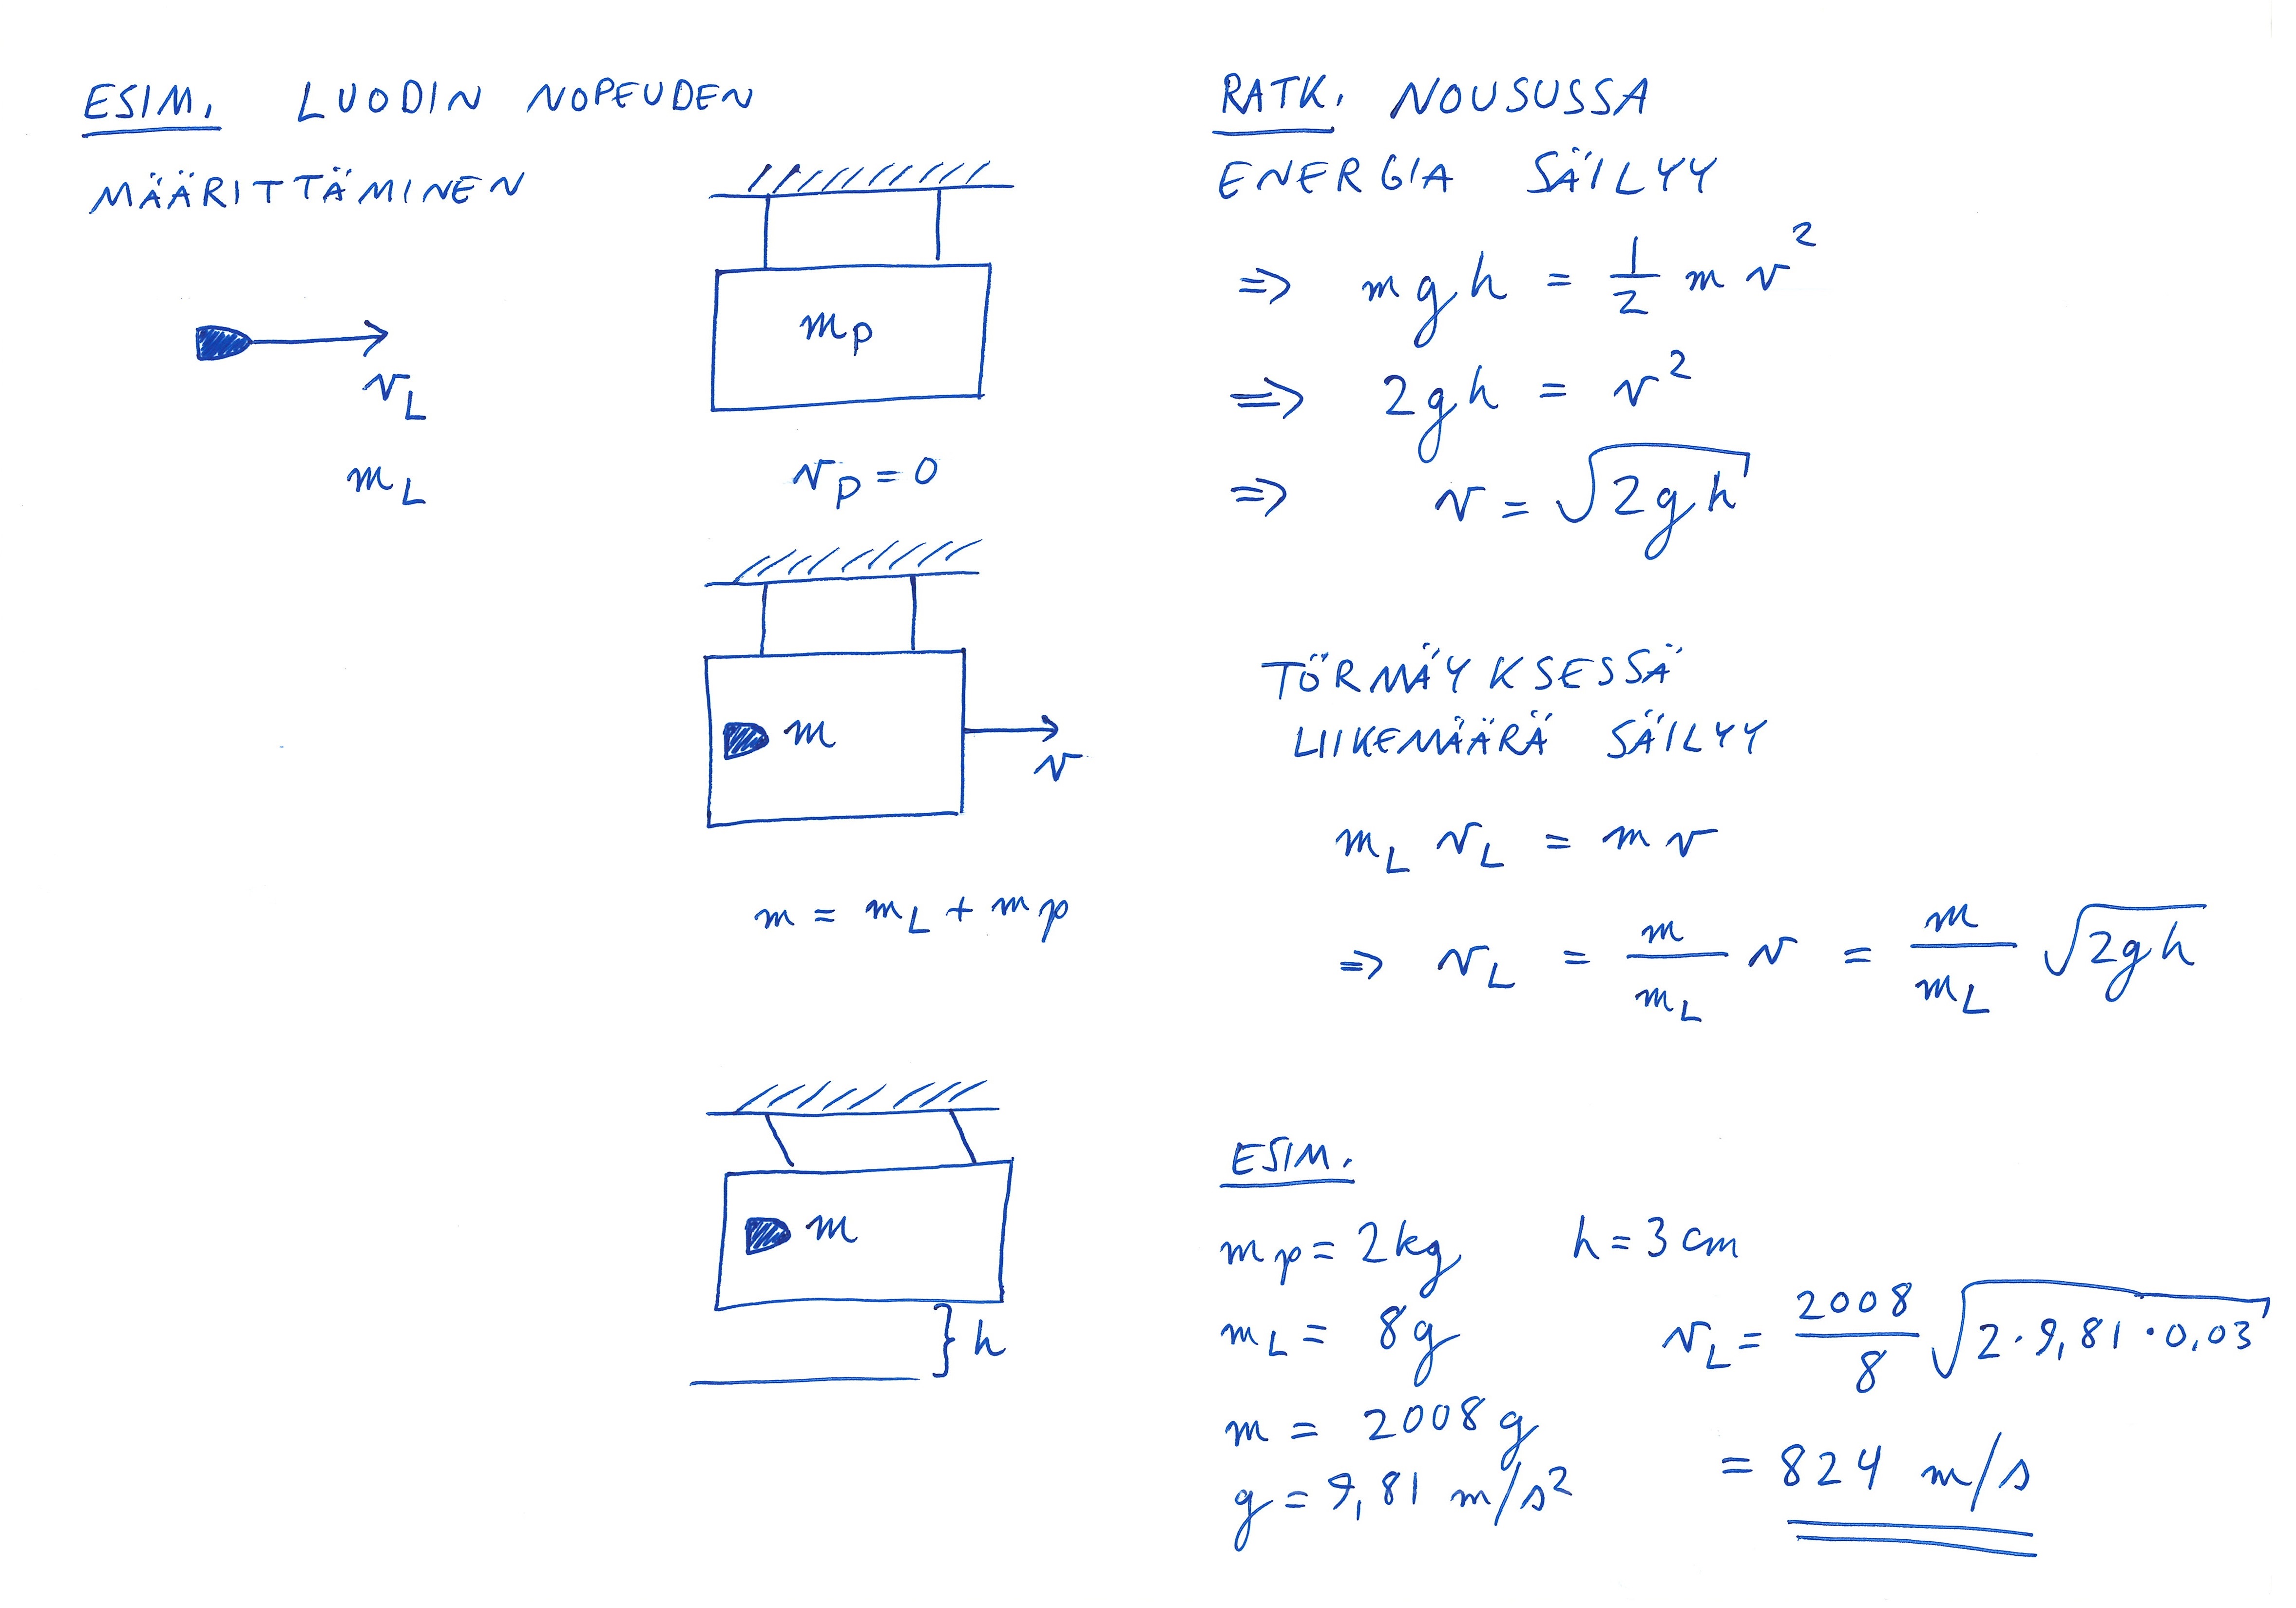 ESIM. LUODIN NOPEUDEN
MÄÄRITTÄMINEN
v_L
m_L
m_p
v_p = 0
m
v
m = m_L + m_p
m
h
RATK. NOUSUSSA
ENERGIA SÄILYY
⇒ mgh = 1/2 m v²
⇒ 2gh = v²
⇒ v = √2gh
TÖRMÄYKSESSÄ
LIIKEMÄÄRÄ SÄILYY
m_L v_L = m v
⇒ v_L = m/m_L v = m/m_L √2gh
ESIM.
m_p = 2kg h = 3 cm
m_L = 8g v_L = 2008/8 √2·9,81·0,03
m = 2008g
= 824 m/s
g = 9,81 m/s²